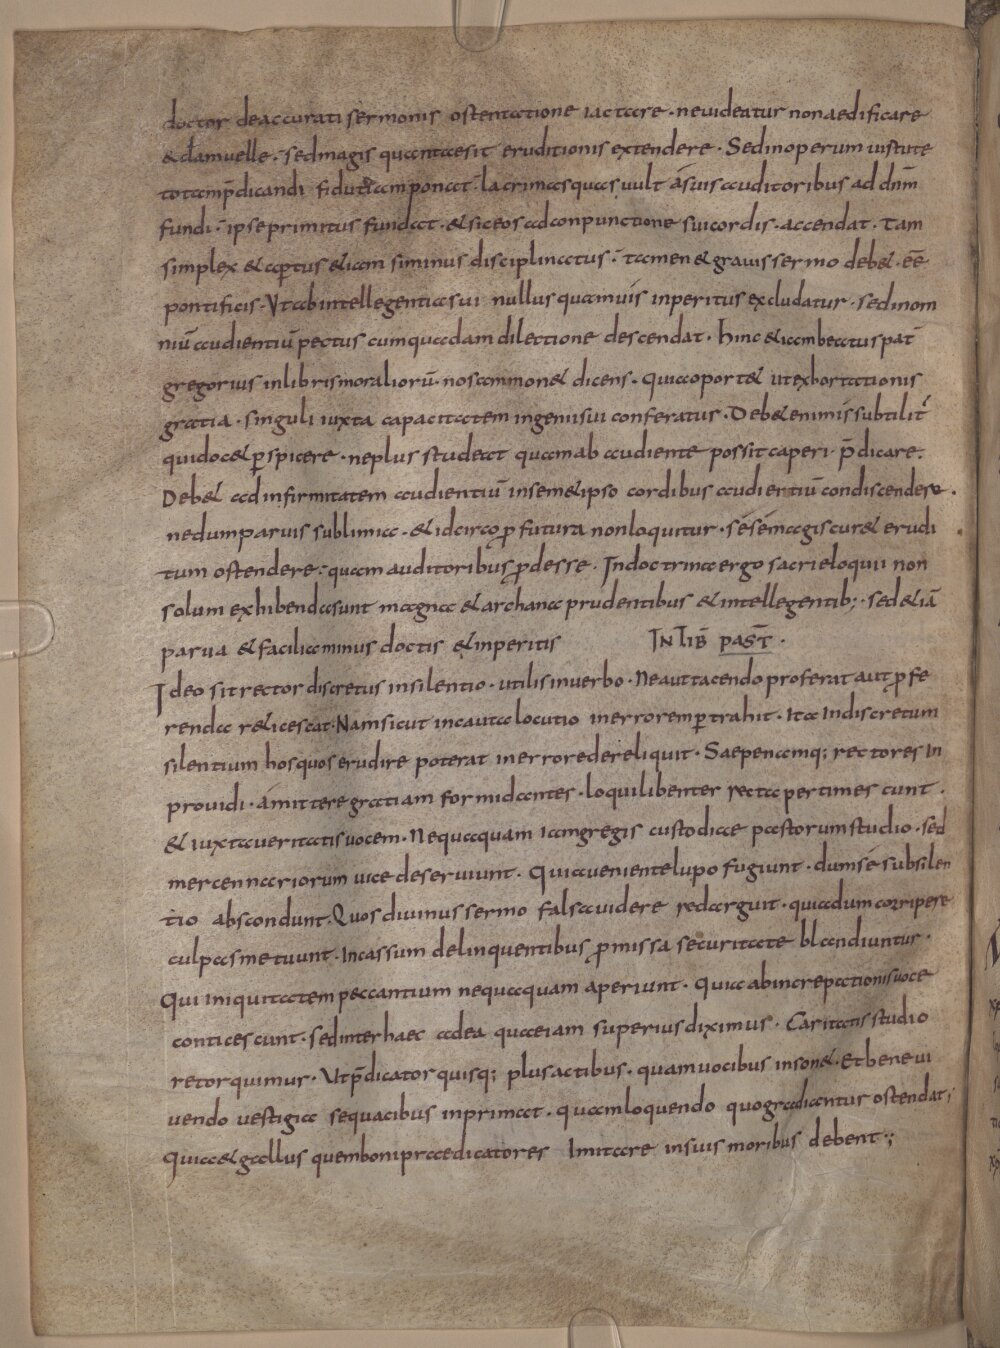 doctor deaccurati sermonis ostentatione iactare · neuideatur nonaedificare
&damuelle · sedmagis quantaesit eruditionis extendere · Sedinoperum uirtute
totamp̄dicandi fiduciam ponat · lacrimasquas uult ásuis auditoribus ad dnm̄
fundi · ipseprimitus fundat · &siceos adconpunctione sui cordis · accendat · Tam
simplex &ap̱tus &iam siminus disciplinatus · tamen &grauis sermo deb& · eē
pontificis · Vtabintellegentia sui nullus quamuis inperitus excludatur · sedinom
niū audientiū pectus cumquadam dilectione descendat · hinc &iambeatus pat̄
gregorius inlibris moraliorū · nos ammon& dicens · Quiaoport& utexhortationis
gratia · singuli iuxta capacitatem ingeniisui conferatur · Deb&enimissubtilit̄
quidoc&p̱spicere · neplus studeat quamab audiente possit caperi · p̄dicare ·
Deb& adinfirmitatem audientiū insem&ipso cordibus audientiū condiscendere ·
nedumparuis sublimia · &idcirco ꝓfutura nonloquitur · sésémagiscur& erudi
tum ostendere · quamauditoribus ꝓdesse · Indoctrina ergo sacrieloquii non
solum exhibendasunt magna &archana prudentibus &intellegentib; · sed&iā
parua &faciliaminus doctis &inperitis INLIB̄ PAST̄ ·
Ideo sit rector discretus insilentio · utilis inuerbo · Neauttacendo proferat aut ꝓfe
renda r&icescat · Namsicut incauta locutio inerrorem p̱trahit · Ita Indiscretum
silentium hosquos erudire poterat inerroredereliquit · Saepenamq; rectores In
prouidi · ámittere gratiam formidantes · loquilibenter recta pertimescunt ·
&iuxtaueritatisuocem · Nequaquam iamgregis custodiae pastorumstudio · sed
mercennariorum uice deseruiunt · Quiauenientelupo fugiunt · dumsé subsilen
tio abscondunt · Quos diuinus sermo falsauidere redarguit · quiadum corripere
culpasmetuunt · Incassum delinquentibus ꝓmissa securitate blandiuntur ·
Qui Iniquitatem peccantium nequaquam aperiunt · Quia abincrepationisuoce
conticescunt · sedinterhaec adea quaeiam superius diximus · Caritatis studio
retorquimur · Vtp̄dicator quisq; plus actibus · quamuocibus inson& · Et bene ui
uendo uestigia sequacibus inprimat · quamloquendo quogradiantur ostendat ;
Quia&gallus quemboni praedicatores Imitare insuis moribus debent ;